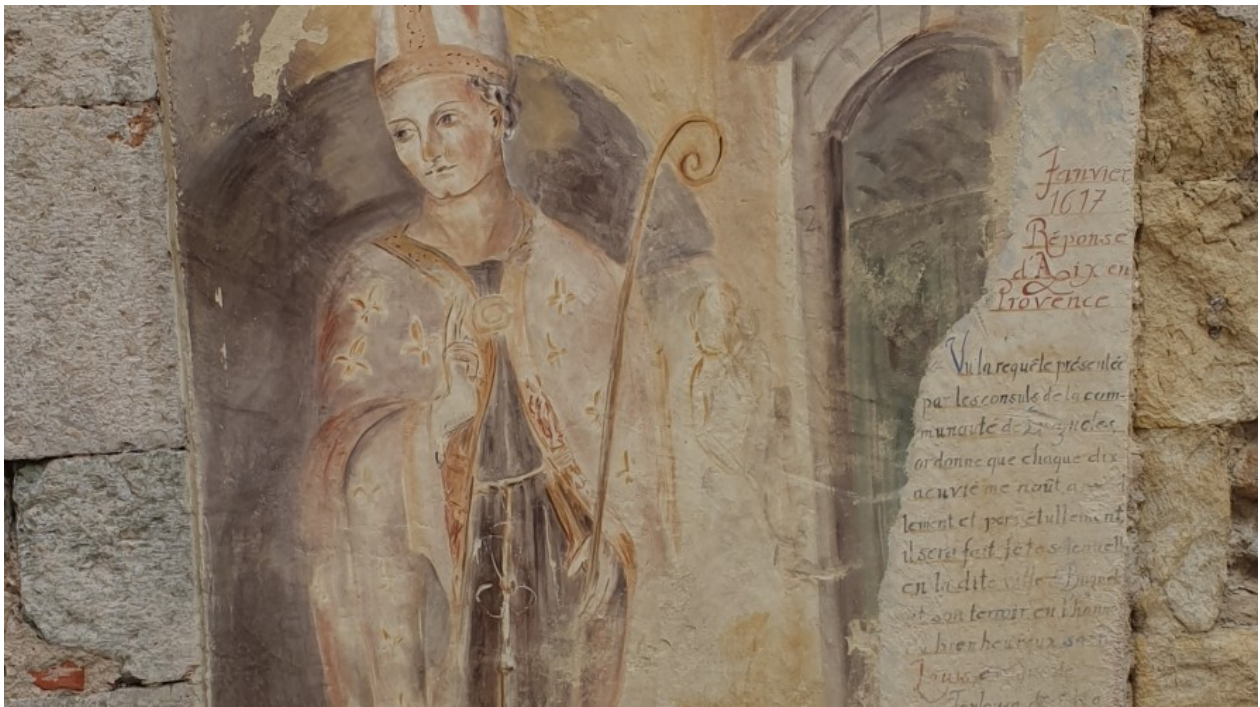 Janvier
1617
Réponse
d'Aix en
Provence
Vu la requête présentée
par les consuls de la com-
munauté de
ordonne que chaque dix
neuvième août
lement et perpétuellement,
il sera fait fête solennelle
en la dite ville
et son terroir en l'honn
bienheureux
Louis
Toulouse